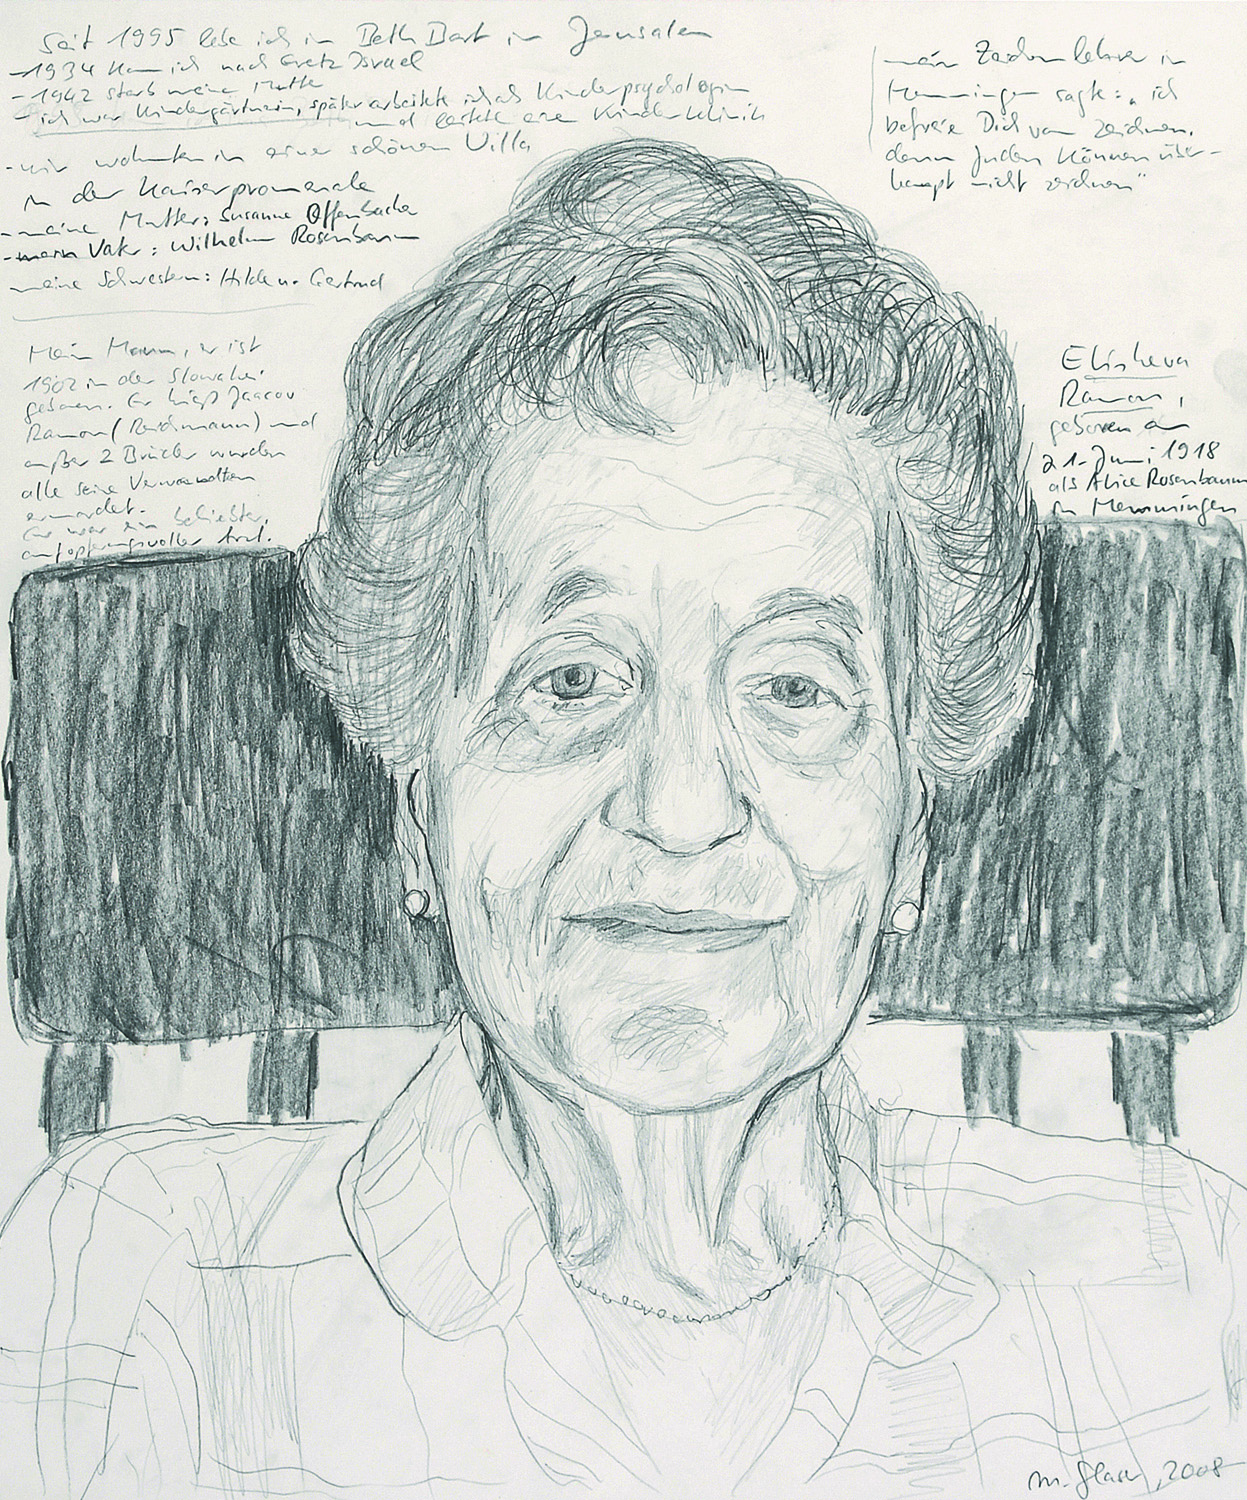 Seit 1995 lebe ich in Beth Bart in Jerusalem
- 1934 kam ich nach Eretz Israel
- 1942 starb meine Mutter
- ich war Kindergärtnerin, später arbeitete ich als Kinderpsychologin
und leitete eine Kinderklinik
- wir wohnten in einer schönen Villa
in der Kaiserpromenade
- meine Mutter: Susanne Offenbacher
- mein Vater: Wilhelm Rosenbaum
meine Schwestern: Hilde u. Gertrud
Mein Mann, er ist
1902 in der Slowakei
geboren. Er hieß Jaacov
Ramon (Reichmann) und
außer 2 Brüder wurden
alle seine Verwandten
ermordet.
Er war ein beliebter,
aufopferungsvoller Arzt.
mein Zeichenlehrer in
Memmingen sagte: „ich
befreie Dich vom Zeichnen,
denn Juden können über-
haupt nicht zeichnen"
Elisheva
Ramon,
geboren am
21. Juni 1918
als Alice Rosenbaum
in Memmingen
M. Glaser, 2008